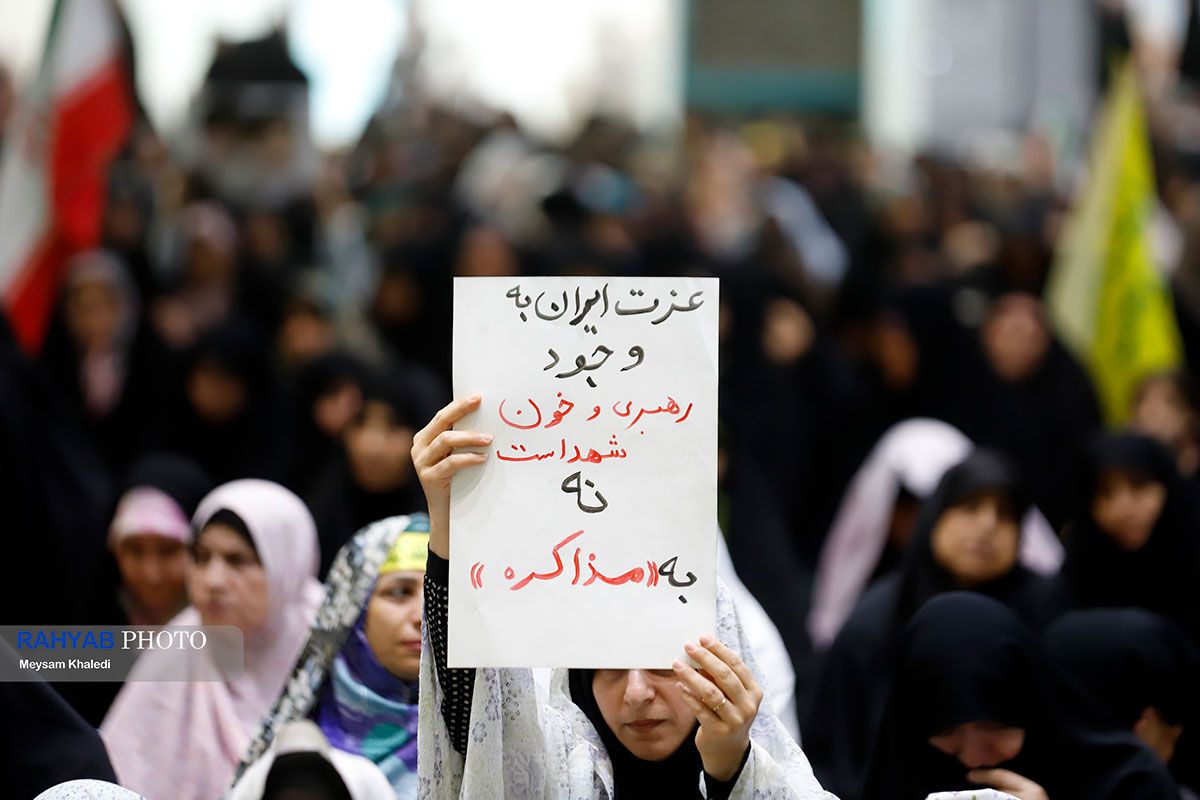 عزت ایران به
وجود
رهبری و خون
شهداست
نه
به «مذاکره»
RAHYAB PHOTO
Meysam Khaledi